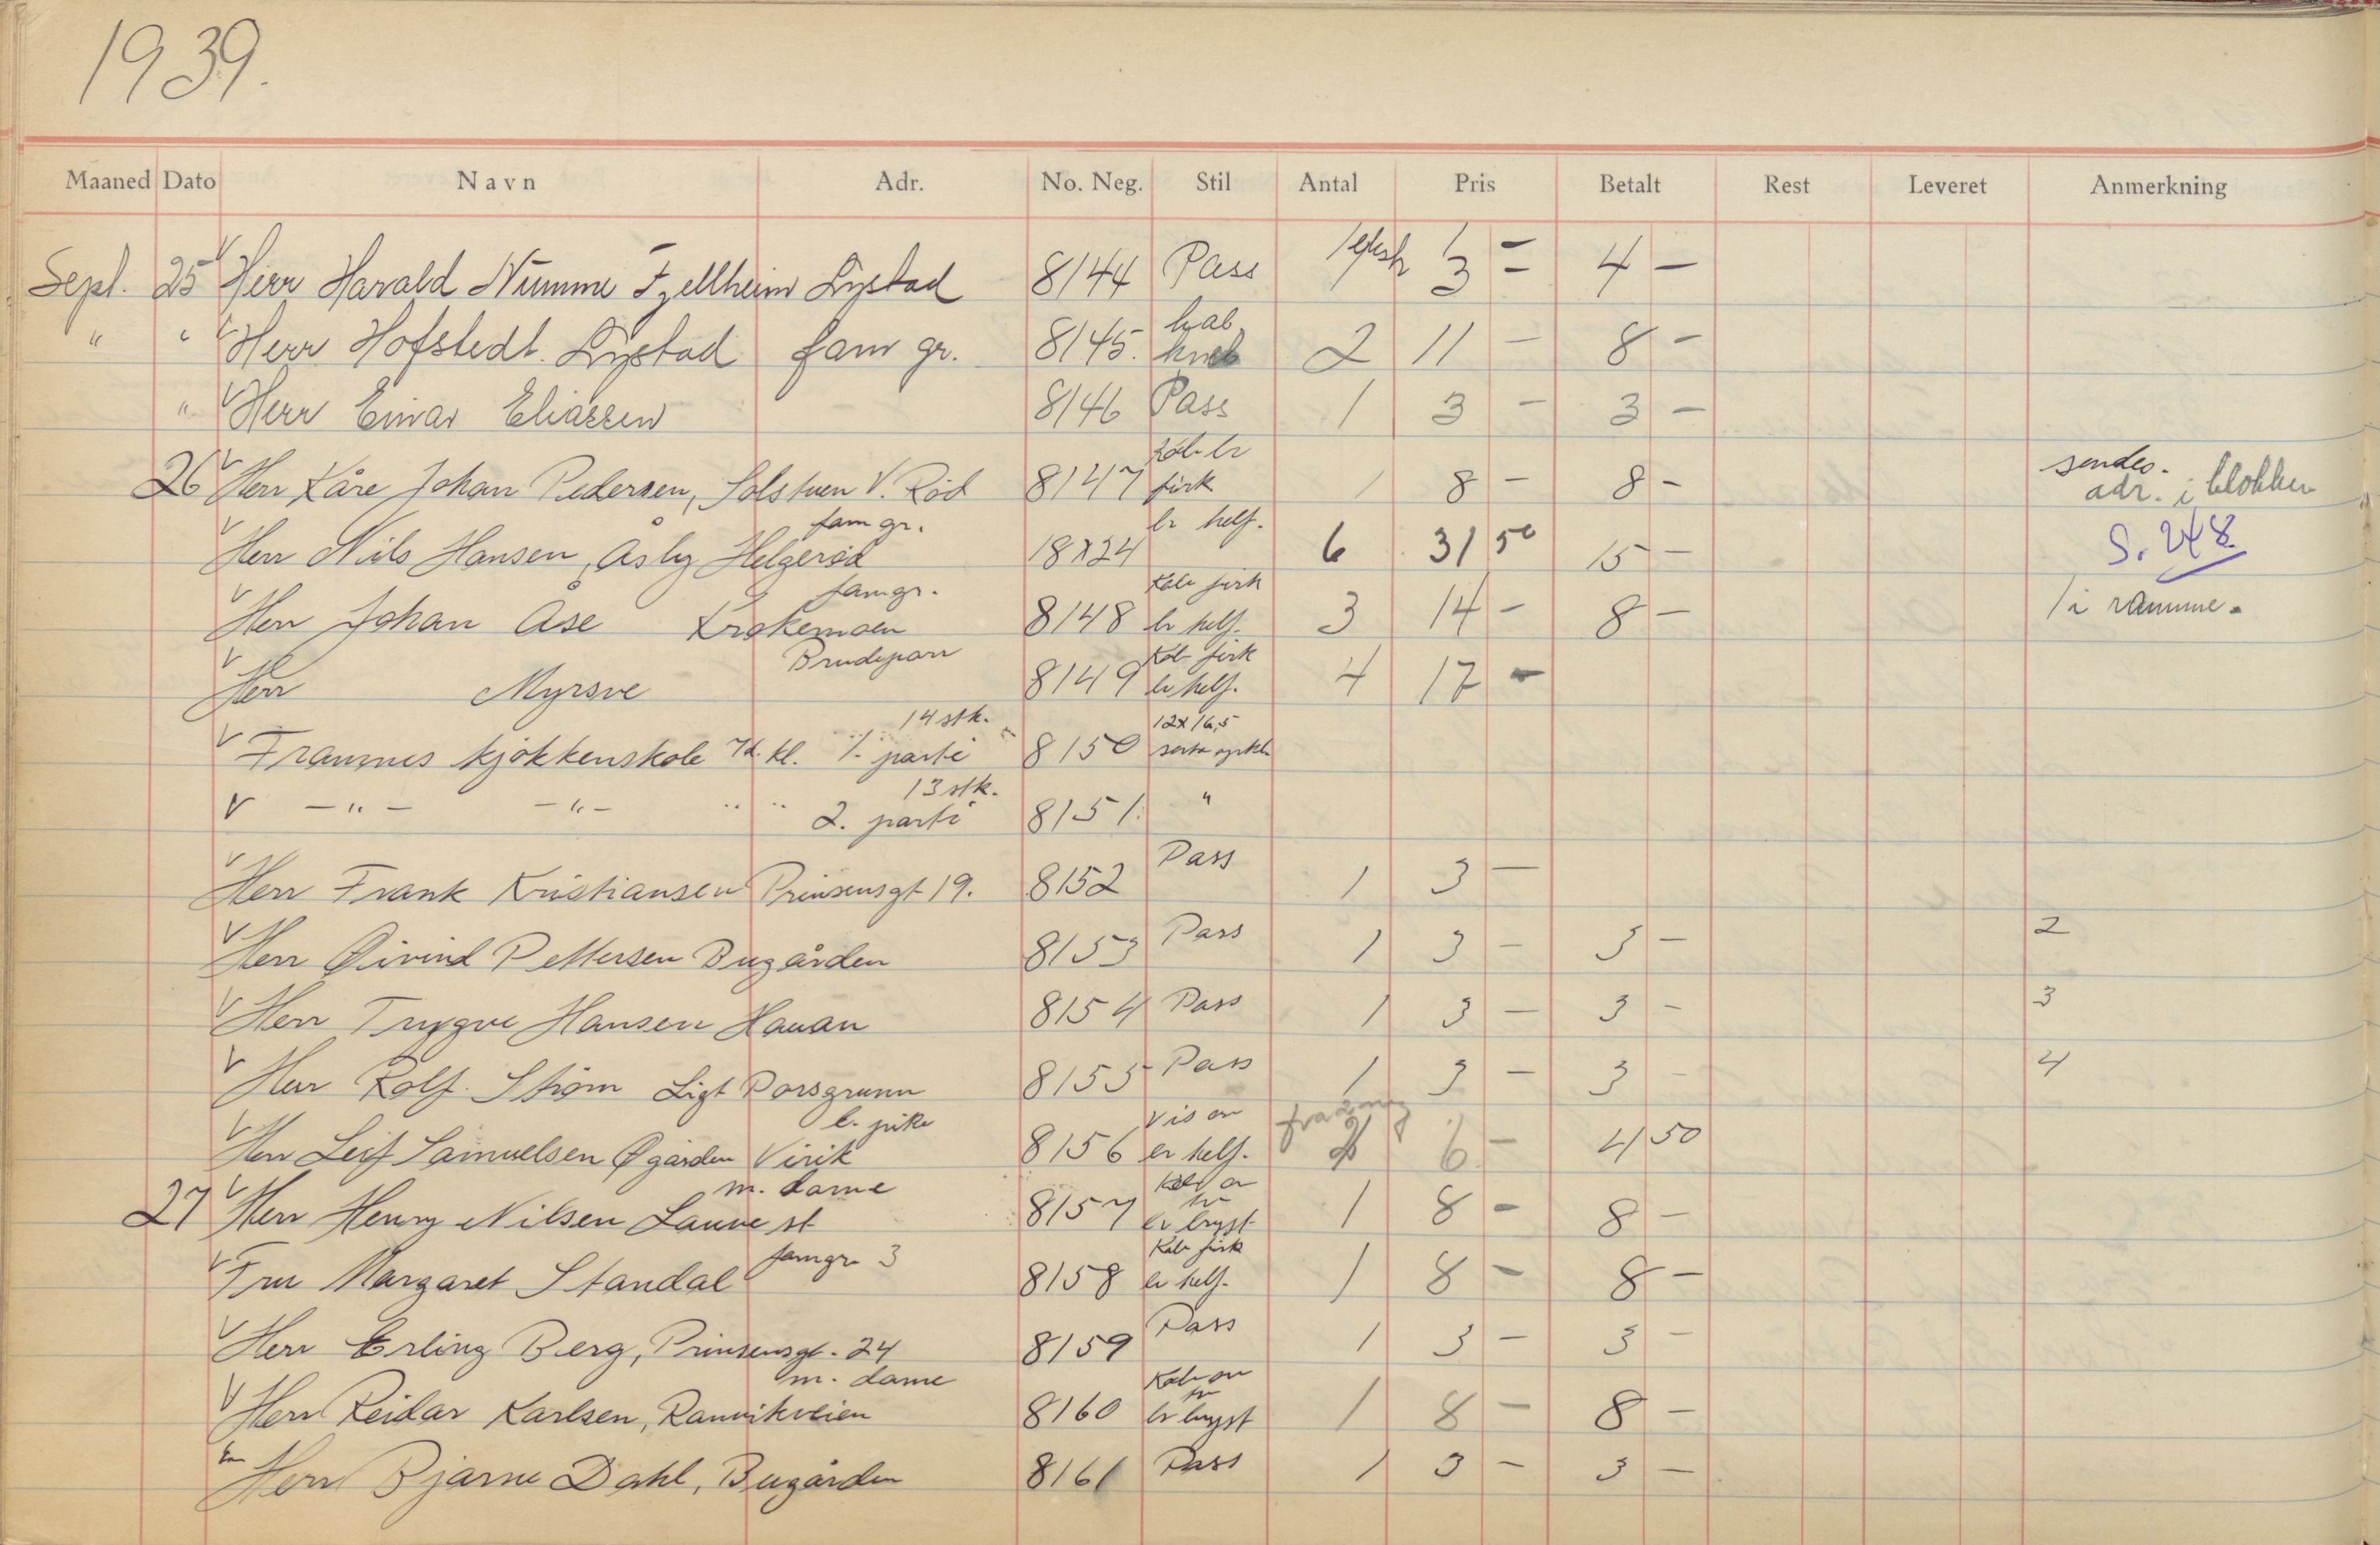 1939.
Maaned Dato Navn Adr. No. Neg. Stil Antal Pris Betalt Rest Leveret Anmerkning
Sept. 25 Herr Harald Numme Fjellheim Lystad 8144 Pass 1 3 - 4 -
" " Herr Hofstedt. Lystad fam gr. 8145. kab kneb 2 11 - 8 -
" Herr Einar Eliassen 8146 Pass 1 3 - 3 -
26 Herr Kåre Johan Pedersen, V. Rød 8147 kab br firk 1 8 - 8 - sendes. adr. i blokken
Herr Nils Hansen, Åsly Helgerød fam gr. 18x24 br helf. 6 31 50 15 - S. 248
Herr Johan Åse Krokemoen famgr. 8148 Kab firk br helf. 3 14 - 8 - 1 i ramme.
Herr Myrsve Brudepar 8149 Kab firk br helf. 4 17 -
Framnes kjøkkenskole 7d. kl. 1. parti 14 stk. 8150 12x16,5
- " - - " - " " 2. parti 13 stk. 8151. "
Herr Frank Kristiansen Prinsensgt 19. 8152 Pass 1 3 -
Herr Øivind Pettersen Bugården 8153 Pass 1 3 - 3 - 2
Herr Trygve Hansen Hauan 8154 Pass 1 3 - 3 - 3
Herr Rolf. Strøm Ligt Porsgrunn 8155 Pass 1 3 - 3 - 4
Herr Leif Samuelsen Øgården Virik l. pike 8156 Vis on br helf. 6 - 4 50
27 Herr Henry Nilsen Lauvest m. dame 8157 Kab on br bryst 1 8 - 8 -
Fru Margaret Standal famgr. 3 8158 Kab firk br helf. 1 8 - 8 -
Herr Erling Berg, Prinsensgt. 24 8159 Pass 1 3 - 3 -
Herr Reidar Karlsen, Ranvikveien m. dame 8160 Kab on br bryst 1 8 - 8 -
Herr Bjarne Dahl, Bugården 8161 Pass 1 3 - 3 -